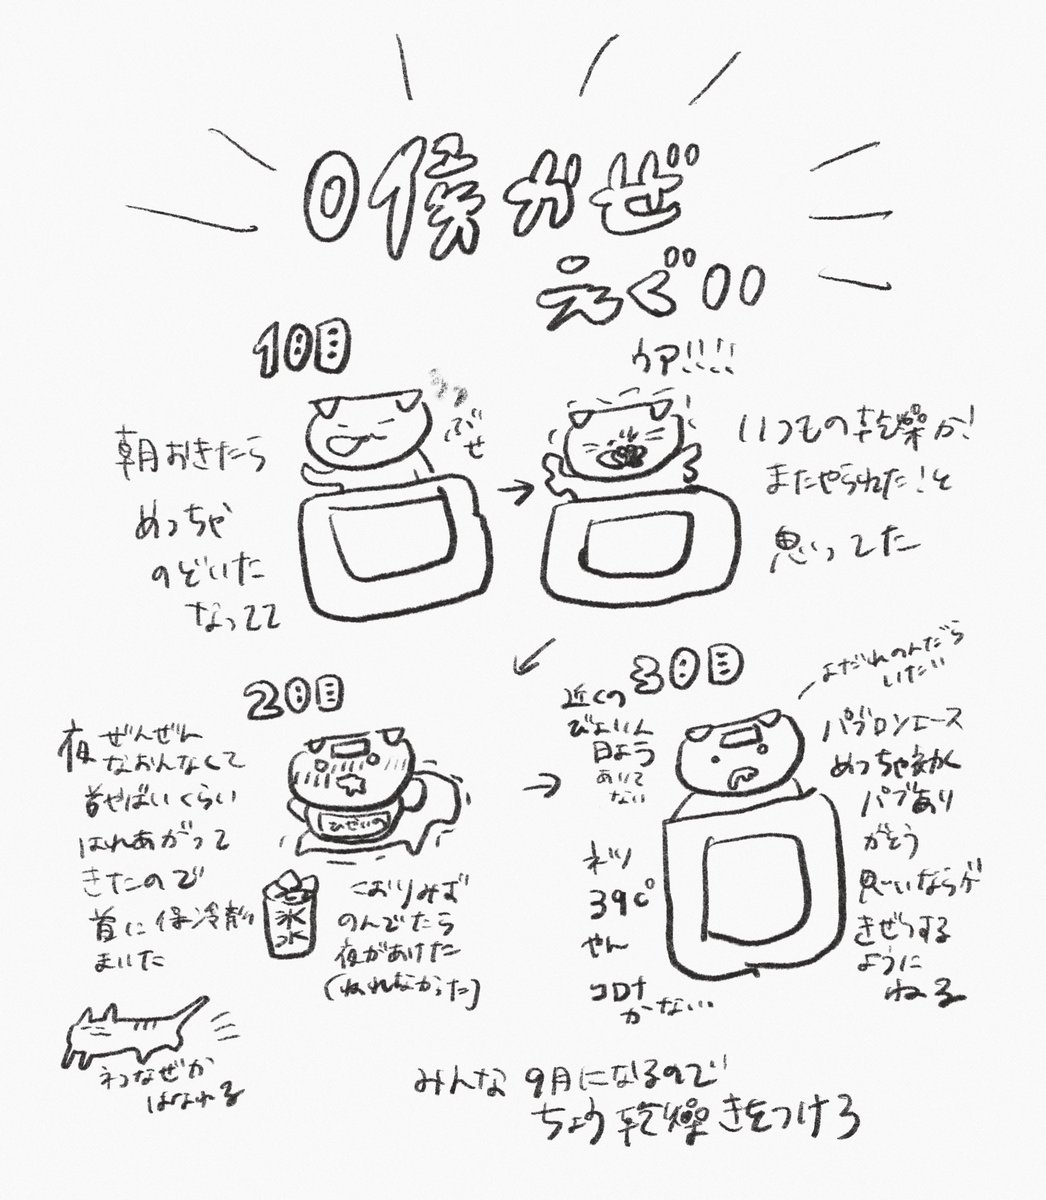 僕かぜ
えぐい
1日目
朝おきたら
めっちゃ
のどいた
なってて
ぶせ
ウア!!!!
いつもの乾燥か!
またやられた!と
思ってた
2日目
夜ぜんぜん
なおんなくて
首やばいくらい
はれあがって
きたので
首に保冷剤
まいた
ひぜいの
氷
水
こおりみず
のんでたら
夜があけた
(ねれなかった)
ネコなぜか
はなれる
3日目
近くの
びよいん
日よう
あいて
ない
ネツ
39℃
やん
コロナ
かない..
よだれのんだら
いたい
パブロンエース
めっちゃ効く
パブあり
がとう
思いながら
きぜつする
ように
ねる
みんな9月になるので
ちょう乾燥きをつけろ